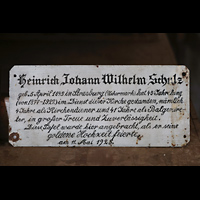 Heinrich Johann Wilhelm Schulz
geb. 5. April 1853 in Strasburg (Uckermark) hat 45 Jahre lang
von 1878-1923 im Dienst dieser Kirche gestanden, nämlich
4 Jahre als Kirchendiener und 41 Jahre als Balgentre-
ter, in großer Treue und Zuverlässigkeit.
Diese Tafel wurde hier angebracht, als er seine
goldene Hochzeit feierte,
am 12. Mai 1928.